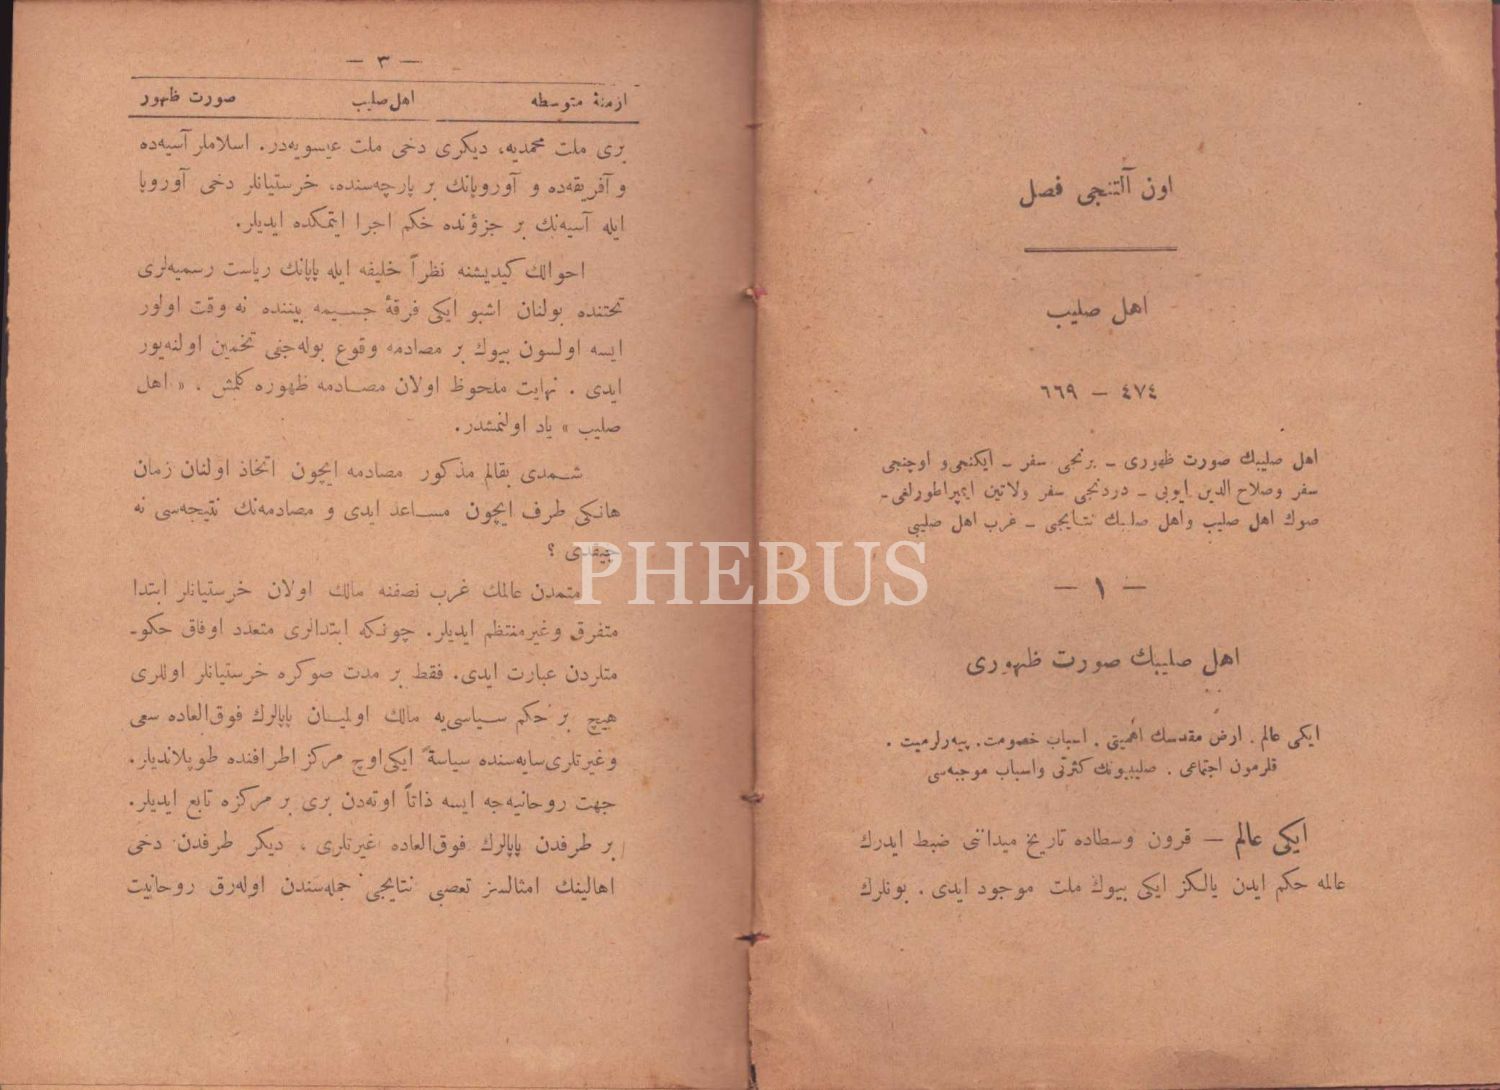 اون آلتنجی فصل
اهل صلیب
٤٧٤ – ٦٦٩
اهل صلیبك صورت ظهوری – برنجی سفر – ایکنجی و اوچنجی
سفر وصلاح الدین ایوبی – دردنجی سفر ولاتین ایمپراطورلغی –
صوك اهل صلیب واهل صلیبك نتایجی – غرب اهل صلیبی
– ١ –
اهل صلیبك صورت ظهوری
ایکی عالم . ارض مقدسك اهمیتی . اسباب خصومت . پیه‌رلرمیت .
قلرمون اجتماعی . صلیبیونك کثرتی واسباب موجبه‌سی
ایکی عالم – قرون وسطاده تاریخ میداننی ضبط ایدرك
عالمه حکم ایدن یالکز ایکی بیوك ملت موجود ایدی . بونلرك
– ٣ –
ازمنهٔ متوسطه اهل صلیب صورت ظهور
بری ملت محمدیه، دیکری دخی ملت عیسویه‌در. اسلاملر آسیه‌ده
و آفریقه‌ده و آوروپانك بر پارچه‌سنده، خرستیانلر دخی آوروپا
ایله آسیه‌نك بر جزؤنده حکم اجرا ایتمکده ایدیلر.
احوالك کیدیشنه نظراً خلیفه ایله پاپانك ریاست رسمیه‌لری
تحتنده بولنان اشبو ایکی فرقهٔ جسیمه بیننده نه وقت اولور
ایسه اولسون بیوك بر مصادمه وقوع بوله‌جنی تخمین اولنه‌یور
ایدی . نهایت ملحوظ اولان مصادمه ظهوره کلمش ، « اهل
صلیب » یاد اولنمشدر.
شمدی بقالم مذکور مصادمه ایچون اتخاذ اولنان زمان
هانکی طرف ایچون مساعد ایدی و مصادمه‌نك نتیجه‌سی نه
چیقدی ؟
متمدن عالمك غرب نصفنه مالك اولان خرستیانلر ابتدا
متفرق وغیرمنتظم ایدیلر. چونکه ابتدالری متعدد اوفاق حکو-
متلردن عبارت ایدی. فقط بر مدت صوکره خرستیانلر اوللری
هیچ بر حکم سیاسی‌یه مالك اولمیان پاپالرك فوق‌العاده سعی
وغیرتلری‌سایه‌سنده سیاسةً ایکی‌اوچ مرکز اطرافنده طوپلاندیلر.
جهت روحانیه‌جه ایسه ذاتاً اوته‌دن بری بر مرکزه تابع ایدیلر.
بر طرفدن پاپالرك فوق‌العاده غیرتلری ، دیکر طرفدن دخی
اهالینك امثالسز تعصبی نتایجی جمله‌سندن اوله‌رق روحانیت
PHEBUS